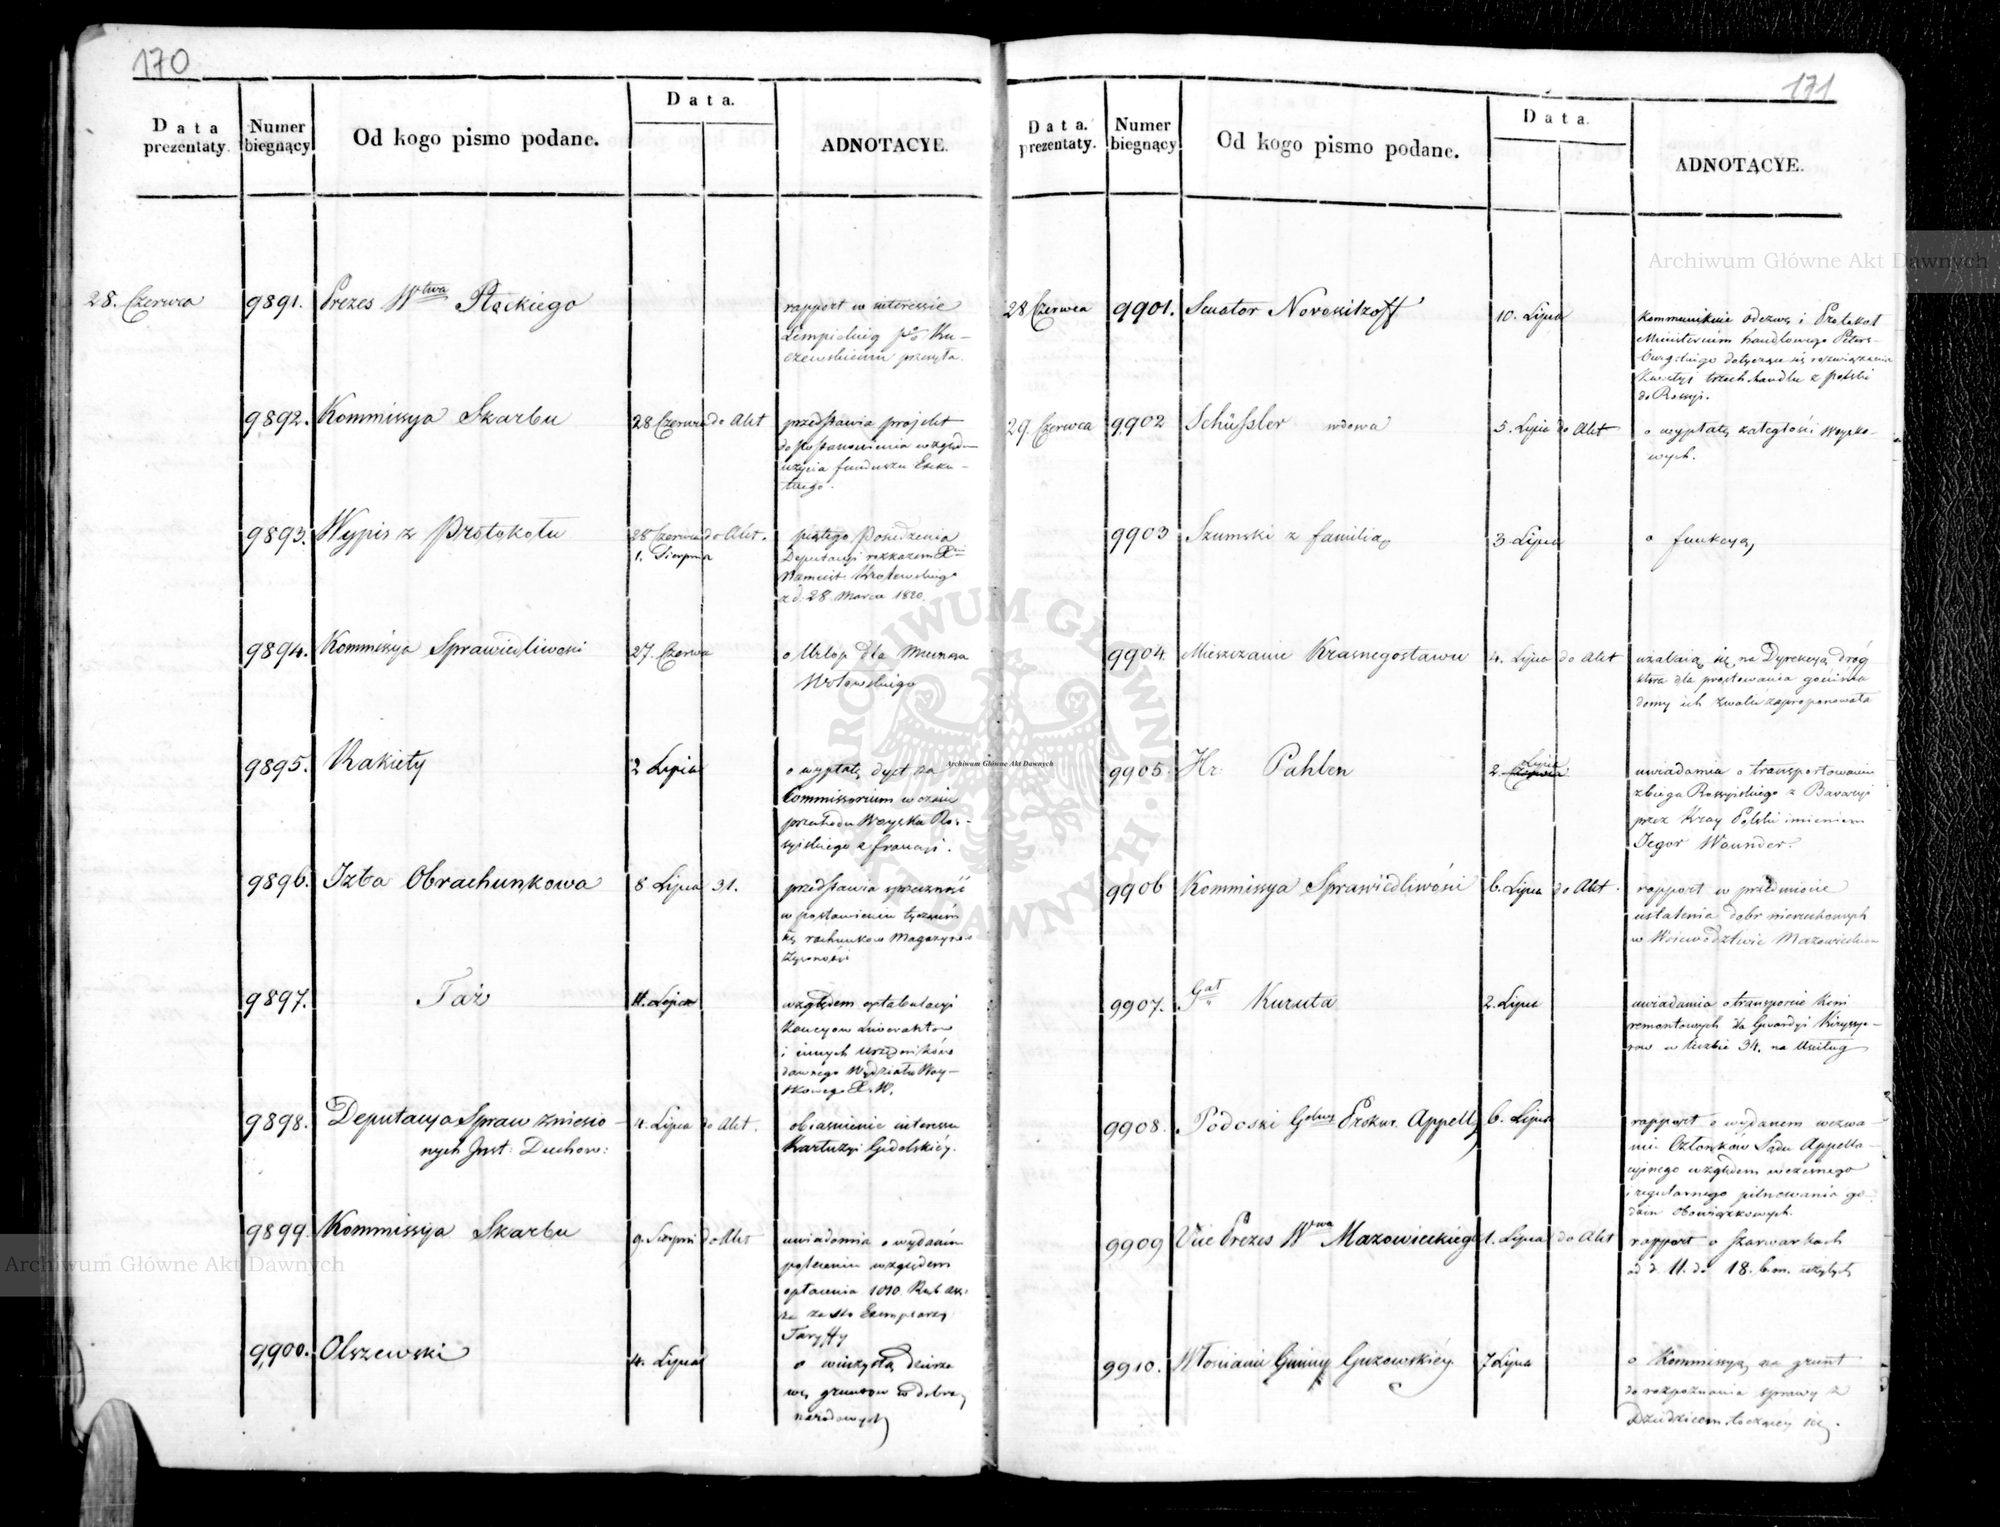 170
Data prezentaty.
Numer biegnący
Od kogo pismo podane.
Data.
ADNOTACYE.
28. Czerwca
9891. Prezes Wtwa Płockiego
rapport w interessie
9892. Kommissya Skarbu
28 Czerwca do Akt
przedstawia projekt
do postanowienia względ=
użycia funduszu
9893. Wypis z Protokołu
28 Czerwca do Akt.
1. Sierpnia
piątego Posiedzenia
z d. 28 Marca 1820.
9894. Kommissya Sprawiedliwości
27. Czerwca
o Urlop dla
9895. Rakiety
2 Lipca
o wypłatę dyet za
Commissorium w czasie
przechodu Woyska Ros=
syiskiego z francyi.
9896. Izba Obrachunkowa
8 Lipca 31.
przedstawia sprzeczność
w postanowieniu
rachunków Magazynów
Żywności
9897. Taż
11. Lipca
względem extabulacyi
Kaucyow Liwerantów
i innych urzędników
dawnego Wydziału Woy=
skowego X. W.
9898. Deputacya Spraw zniesio=
nych Inst: Duchow:
4. Lipca do Akt.
obiasnienie interessu
Kartuzyi Gidelskiéy.
9899. Kommissya Skarbu
9. Sierpni do Akt
uwiadomia o wydaniu
polecenia względem
opłacenia 1010. Rub. ass.
za sto Exemplarzy
Taryffy
9,900. Olszewski
4. Lipca
o wieczystą dzierża
wę gruntow w dobrach
narodowych
171
Data. prezentaty.
Numer biegnący
Od kogo pismo podane.
Data.
ADNOTACYE.
28 Czerwca
9901. Senator Novosiltzoff
10. Lipca
kommunikuie odezwę i Protokoł
Ministerium handlowego Peters=
burgskiego dotyczące się rozwiązania
Kwestyi trzech handlu z Polski
do Rossyi.
29. Czerwca
9902 Schüssler wdowa
5. Lipca do Akt
o wypłatę zaległości Woysko=
wych.
9903 Szumski z familią
3 Lipca
o funkcyą
9904. Mieszczanie Krasnegostawu
4. Lipca do Akt
użalaią się na Dyrekcyą dróg
która dla prostowania gościńca
domy ich zwalić zaproponowała
9905 Hr. Pahlen
2 Lipca
uwiadamia o transportowaniu
zbiega Rossyiskiego z Bawaryi
przez Kray Polski imieniem
Jegor Waunder.
9906 Kommissya Sprawiedliwości
6. Lipca do Akt.
rapport w przedmiocie
ustalenia dobr nieruchomych
w Woiewództwie Mazowieckiem
9907. Gał Kuruta
2. Lipca
uwiadamia o transporcie Koni
remontowych dla Gwardyi Kirassye=
row w liczbie 34. na Uściług
9908. Podoski Glny Prokur. Appell.
6. Lipca
rapport o wydanem wezwa
niu Członków Sądu Appella=
cyinego względem wczesnego
i regularnego pilnowania go=
dzin obowiązkowych.
9909 Vice Prezes Wwa Mazowieckiego
1. Lipca do Akt
rapport o szarwarkach
od d. 11. do 18. b. m. użytych
9910. Włościanie Gminy Guzowskiéy
7 Lipca
o Kommissyą na grunt
do rozpoznania sprawy z
Dziedzicem toczącey się.
Archiwum Główne Akt Dawnych
Archiwum Główne Akt Dawnych
Archiwum Główne Akt Dawnych
ARCHIWUM GŁÓWNE AKT DAWNYCH